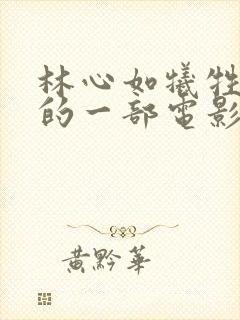 林心如犧牲
的一部電影
黃黔華